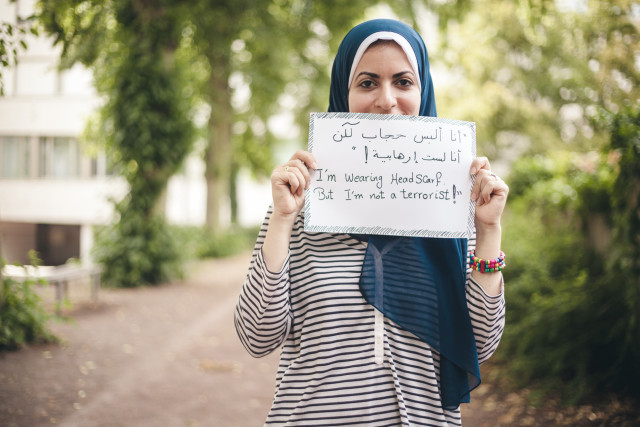 "أنا ألبس حجاب لكن
أنا لست إرهابية ! "
I'm wearing HeadScarf
But I'm not a terrorist!"